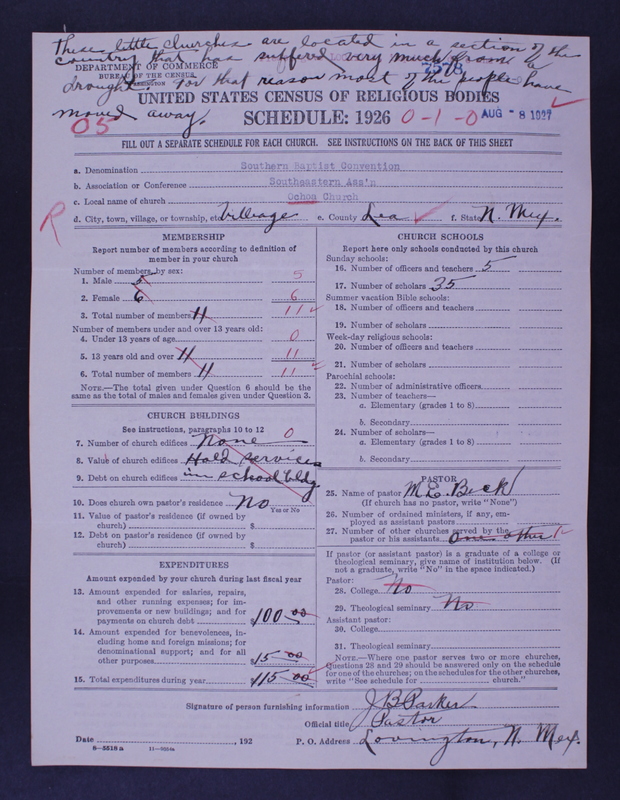 These little churches are located in a section of the
country that has suffered very much from a
DEPARTMENT OF COMMERCE
BUREAU OF THE CENSUS
WASHINGTON
7578
drought. For that reason most of the people have
moved away.
UNITED STATES CENSUS OF RELIGIOUS BODIES
05
SCHEDULE: 1926
0-1-0
AUG -8 1927
FILL OUT A SEPARATE SCHEDULE FOR EACH CHURCH. SEE INSTRUCTIONS ON THE BACK OF THIS SHEET
a. Denomination Southern Baptist Convention
b. Association or Conference Southeastern Ass'n
c. Local name of church Ochoa Church
R
d. City, town, village, or township, etc. Village e. County Lea f. State N. Mex.
MEMBERSHIP
Report number of members according to definition of
member in your church
Number of members by sex:
1. Male 5 5
2. Female 6 6
3. Total number of members 11 11
Number of members under and over 13 years old:
4. Under 13 years of age 0
5. 13 years old and over 11 11
6. Total number of members 11 11
NOTE.—The total given under Question 6 should be the
same as the total of males and females given under Question 3.
CHURCH BUILDINGS
See instructions, paragraphs 10 to 12
7. Number of church edifices None 0
8. Value of church edifices Hold services
9. Debt on church edifices in school bldg
10. Does church own pastor's residence No
Yes or No
11. Value of pastor's residence (if owned by
church) $
12. Debt on pastor's residence (if owned by
church) $
EXPENDITURES
Amount expended by your church during last fiscal year
13. Amount expended for salaries, repairs,
and other running expenses; for im-
provements or new buildings; and for
payments on church debt $100.00
14. Amount expended for benevolences, in-
cluding home and foreign missions; for
denominational support; and for all
other purposes $15.00
15. Total expenditures during year $115.00
CHURCH SCHOOLS
Report here only schools conducted by this church
Sunday schools:
16. Number of officers and teachers 5
17. Number of scholars 35
Summer vacation Bible schools:
18. Number of officers and teachers
19. Number of scholars
Week-day religious schools:
20. Number of officers and teachers
21. Number of scholars
Parochial schools:
22. Number of administrative officers
23. Number of teachers—
a. Elementary (grades 1 to 8)
b. Secondary
24. Number of scholars—
a. Elementary (grades 1 to 8)
b. Secondary
PASTOR
25. Name of pastor M. E. Beck
(If church has no pastor, write "None")
26. Number of ordained ministers, if any, em-
ployed as assistant pastors
27. Number of other churches served by the
pastor or his assistants One other
If pastor (or assistant pastor) is a graduate of a college or
theological seminary, give name of institution below. (If
not a graduate, write "No" in the space indicated.)
Pastor:
28. College No
29. Theological seminary No
Assistant pastor:
30. College
31. Theological seminary
NOTE.—Where one pastor serves two or more churches,
Questions 28 and 29 should be answered only on the schedule
for one of the churches; on the schedules for the other churches,
write "See schedule for church."
Signature of person furnishing information J B Parker
Official title Pastor
Date , 192 P. O. Address Lovington, N. Mex.
8-5518a 11-9084a